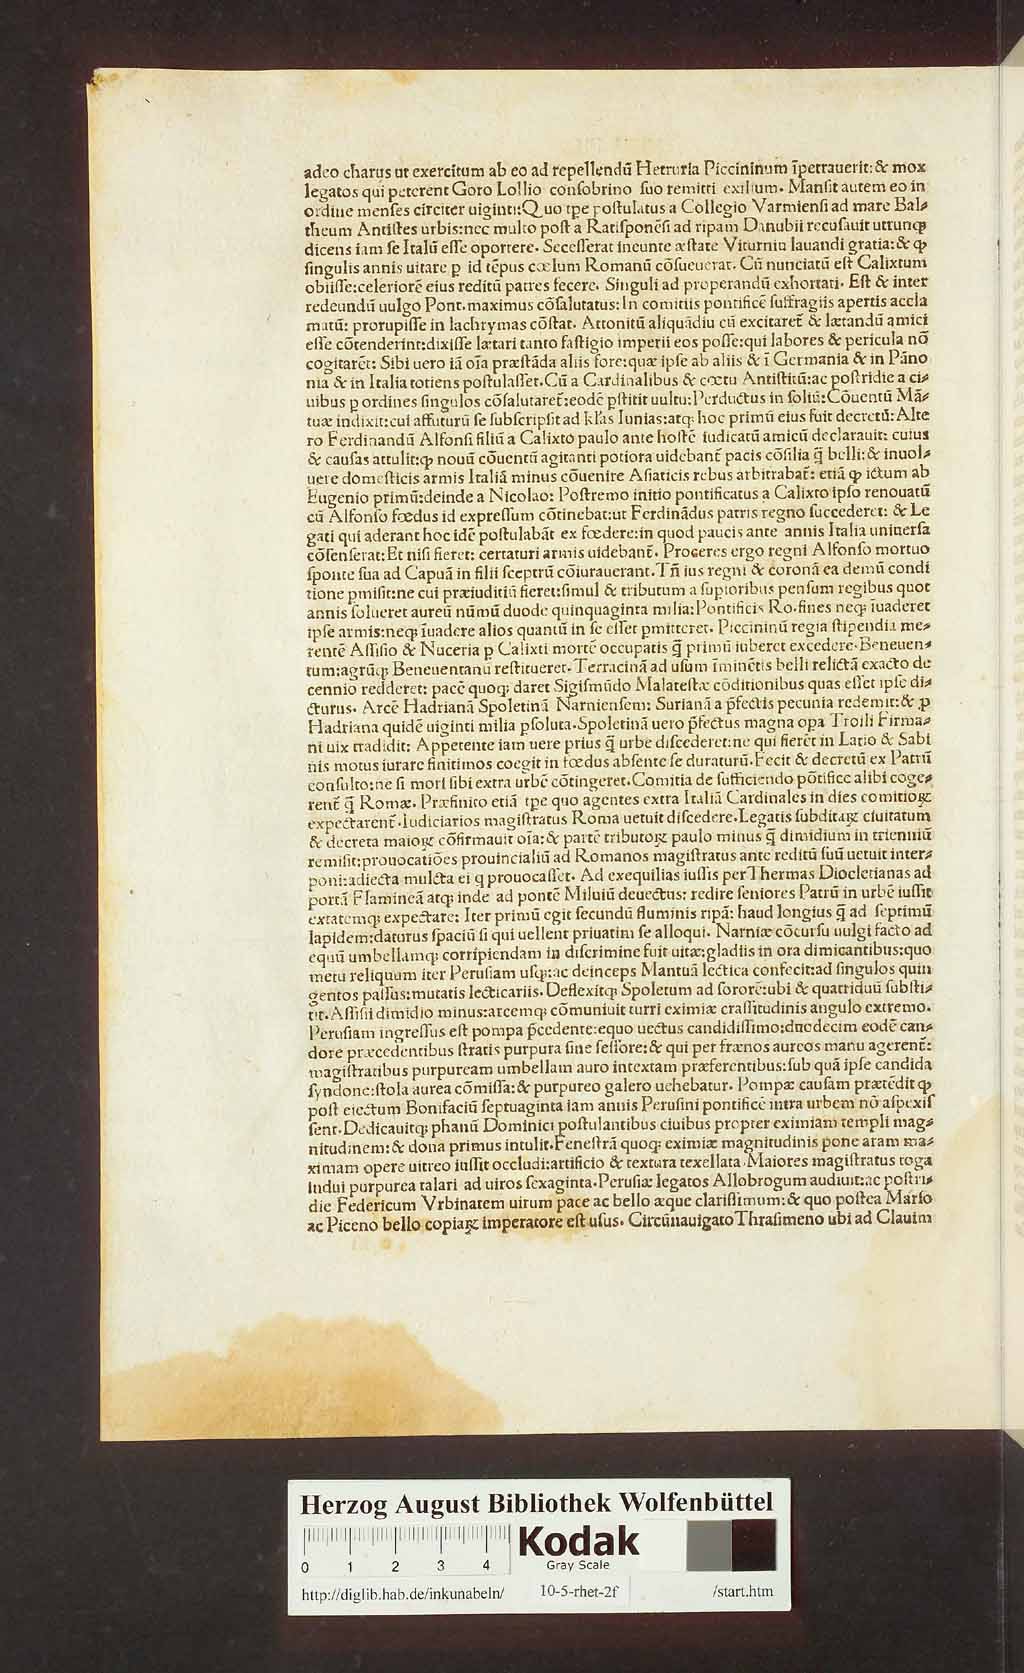 adeo charus ut exercitum ab eo ad repellendū Hetruria Piccininum ĩpetrauerit: & mox
legatos qui peterent Goro Lollio consobrino suo remitti exilium. Mansit autem eo in
ordine menses circiter uiginti: Quo tpe postulatus a Collegio Varmiensi ad mare Bal-
theum Antistes urbis: nec multo post a Ratisponēsi ad ripam Danubii recusauit utrunqꝫ
dicens iam se Italū esse oportere. Secesserat ineunte æstate Viturniū lauandi gratia: & ꝙ
singulis annis uitare p id tēpus cœlum Romanū cōsueuerat. Cū nunciatū est Calixtum
obiisse: celeriorē eius reditū patres fecere. Singuli ad properandū exhortati. Est & inter
redeundū uulgo Pont. maximus cōsalutatus: In comitiis pontificē suffragiis apertis accla
matū: prorupisse in lachrymas cōstat. Attonitū aliquādiu cū excitaret̄ & lætandū amici
esse cōtenderint: dixisse lætari tanto fastigio imperii eos posse: qui labores & pericula nō
cogitarēt: Sibi uero iā oīa præstāda aliis fore: quæ ipse ab aliis & ĩ Germania & in Pāno
nia & in Italia totiens postulasset. Cū a Cardinalibus & cœtu Antistitū: ac postridie a ci-
uibus p ordines singulos cōsalutaret̄: eodē pstitit uultu: Perductus in soliū: Cōuentū Mā-
tuæ indixit: cui affuturū se subscripsit ad kl̄as Iunias: atqꝫ hoc primū eius fuit decretū: Alte
ro Ferdinandū Alfonsi filiū a Calixto paulo ante hostē iudicatū amicū declarauit: cuius
& causas attulit: ꝙ nouū cōuentū agitanti potiora uidebant̄ pacis cōsilia q̄ belli: & inuol-
uere domesticis armis Italiā minus cōuenire Asiaticis rebus arbitrabat̄: etiā ꝙ ictum ab
Eugenio primū: deinde a Nicolao: Postremo initio pontificatus a Calixto ipso renouatū
cū Alfonso fœdus id expressum cōtinebat: ut Ferdinādus patris regno succederet: & Le
gati qui aderant hoc idē postulabāt ex fœdere: in quod paucis ante annis Italia uniuersa
cōsenserat: Et nisi fieret: certaturi armis uidebant̄. Proceres ergo regni Alfonso mortuo
sponte sua ad Capuā in filii sceptrū cōiurauerant. Tn̄ ius regni & coronā ea demū condi
tione pmisit: ne cui præiuditiū fieret: simul & tributum a supioribus pensum regibus quot
annis solueret aureū nūmū duode quinquaginta milia: Pontificis Ro. fines neqꝫ ĩuaderet
ipse armis: neqꝫ ĩuadere alios quantū in se esset pmitteret. Piccininū regia stipendia me-
rentē Assisio & Nuceria p Calixti mortē occupatis q̄ primū iuberet excedere. Beneuen-
tum: agrūqꝫ Beneuentanū restitueret. Terracinā ad usum ĩminētis belli relictā exacto de
cennio redderet: pacē quoqꝫ daret Sigismūdo Malatestæ cōditionibus quas esset ipse di-
cturus. Arcē Hadrianā Spoletinā Narniensem: Surianā a p̄fectis pecunia redemit: & ꝓ
Hadriana quidē uiginti milia psoluta. Spoletinā uero p̄fectus magna opa Troili Firma-
ni uix tradidit: Appetente iam uere prius q̄ urbe discederet: ne qui fierēt in Latio & Sabi
nis motus iurare finitimos coegit in fœdus absente se duraturū. Fecit & decretū ex Patrū
consulto: ne si mori sibi extra urbē cōtingeret. Comitia de sufficiendo pōtifice alibi coge-
rent̄ q̄ Romæ. Præfinito etiā tpe quo agentes extra Italiā Cardinales in dies comitioꝝ
expectarent̄. Iudiciarios magistratus Roma uetuit discedere. Legatis subditaꝝ ciuitatum
& decreta maioꝝ cōfirmauit oīa: & partē tributoꝝ paulo minus q̄ dimidium in trienniū
remisit: prouocatiōes prouincialiū ad Romanos magistratus ante reditū suū uetuit inter-
poni: adiecta mulcta ei q prouocasset. Ad exequilias iussis per Thermas Diocletianas ad
portā Flamineā atqꝫ inde ad pontē Miluiū deuectus: redire seniores Patrū in urbē iussit
extatemqꝫ expectare: Iter primū egit secundū fluminis ripā: haud longius q̄ ad septimū
lapidem: daturus spaciū si qui uellent priuatim se alloqui. Narniæ cōcursu uulgi facto ad
equū umbellamqꝫ corripiendam in discrimine fuit uitæ: gladiis in ora dimicantibus: quo
metu reliquum iter Perusiam usqꝫ: ac deinceps Mantuā lectica confecit: ad singulos quin
gentos passus: mutatis lecticariis. Deflexitqꝫ Spoletum ad sororē: ubi & quatriduū substi-
tit. Assisii dimidio minus: arcemqꝫ cōmuniuit turri eximiæ crassitudinis angulo extremo.
Perusiam ingressus est pompa p̄cedente: equo uectus candidissimo: duodecim eodē can-
dore præcedentibus stratis purpura sine sessore: & qui per frænos aureos manu agerent̄:
magistratibus purpuream umbellam auro intextam præferentibus: sub quā ipse candida
syndone: stola aurea cōmissa: & purpureo galero uehebatur. Pompæ causam prætēdit ꝙ
post eiectum Bonifaciū septuaginta iam annis Perusini pontificē intra urbem nō aspexis
sent. Dedicauitqꝫ phanū Dominici postulantibus ciuibus propter eximiam templi mag-
nitudinem: & dona primus intulit. Fenestrā quoqꝫ eximiæ magnitudinis pone aram ma-
ximam opere uitreo iussit occludi: artificio & textura texellata. Maiores magistratus toga
indui purpurea talari ad uiros sexaginta. Perusiæ legatos Allobrogum audiuit: ac postri-
die Federicum Vrbinatem uirum pace ac bello æque clarissimum: & quo postea Marso
ac Piceno bello copiaꝝ imperatore est usus. Circūnauigato Thrasimeno ubi ad Clauim
Herzog August Bibliothek Wolfenbüttel
0 1 2 3 4
Kodak
Gray Scale
http://diglib.hab.de/inkunabeln/ 10-5-rhet-2f /start.htm